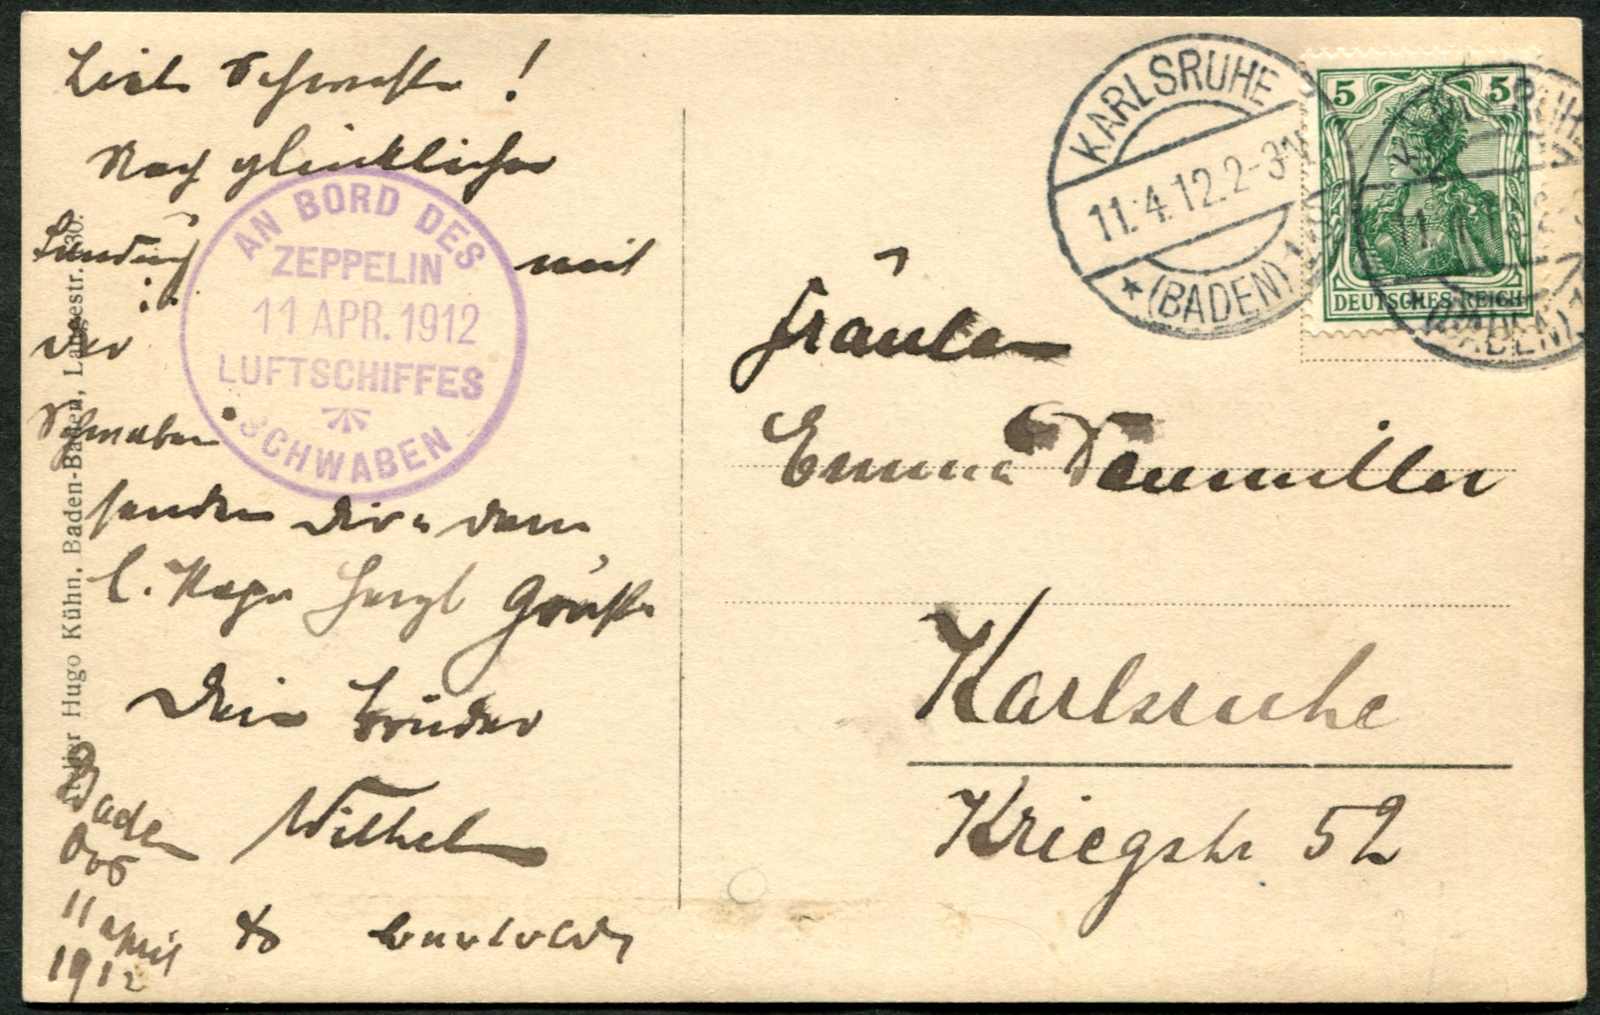 Liebe Schwester!
Nach glücklicher
Landung mit
der
Schwaben
senden Dir u dem
l. Papa herzl Grüße
Dein Bruder
Wilhelm
&
Baden
Oos
11 april
1912
AN BORD DES
ZEPPELIN
11 APR. 1912
LUFTSCHIFFES
SCHWABEN
Hugo Kühn, Baden-Baden, Langestr. 30.
KARLSRUHE
11.4.12.2-3N
* (BADEN) 1
5 5
DEUTSCHES REICH
KARLSRUHE
11.4
(BADEN) 1
Fräulein
Emma Dannmiller
Karlsruhe
Kriegstr 52